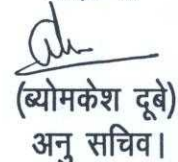 (ब्योमकेश दूबे)
अनु सचिव।